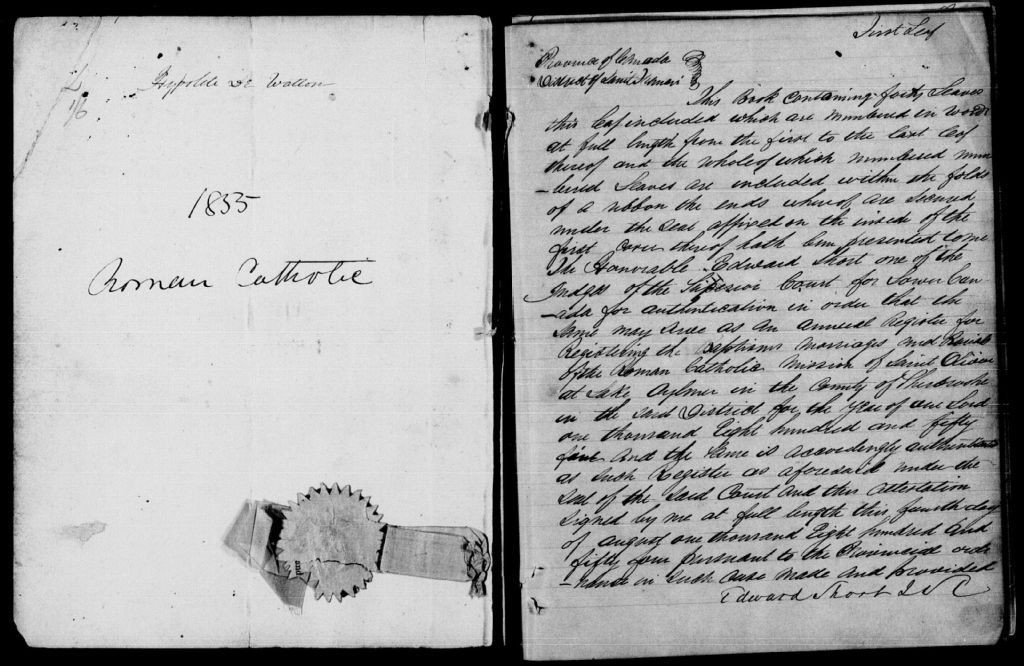 Hypolite de Wotton
1855
Roman Catholic
First Leaf
Province of Canada
District of Saint Francis
This Book Containing forty Leaves
this leaf included which are numbered in words
at full length from the first to the last leaf
thereof and the whole of which numbered num
-bered Leaves are included within the folds
of a ribbon the ends whereof are secured
under the seal affixed on the inside of the
first cover thereof hath been presented to me
The Honorable Edward Short one of the
Judges of the Superior Court for Lower Can
-ada for authentication in order that the
same may serve as an annual Register for
Registering the Baptisms Marriages and Burials
of the Roman Catholic Mission of Saint
at Lake Aylmer in the County of Sherbrooke
in the said District for the year of our Lord
one thousand Eight hundred and fifty
five And the same is accordingly authenticated
as such Register as aforesaid under the
seal of the said Court and this attestation
signed by me at full length this fourth day
of august one thousand Eight hundred and
fifty four pursuant to the Provincial ordi
-nance in such case made and provided
Edward Short J S C